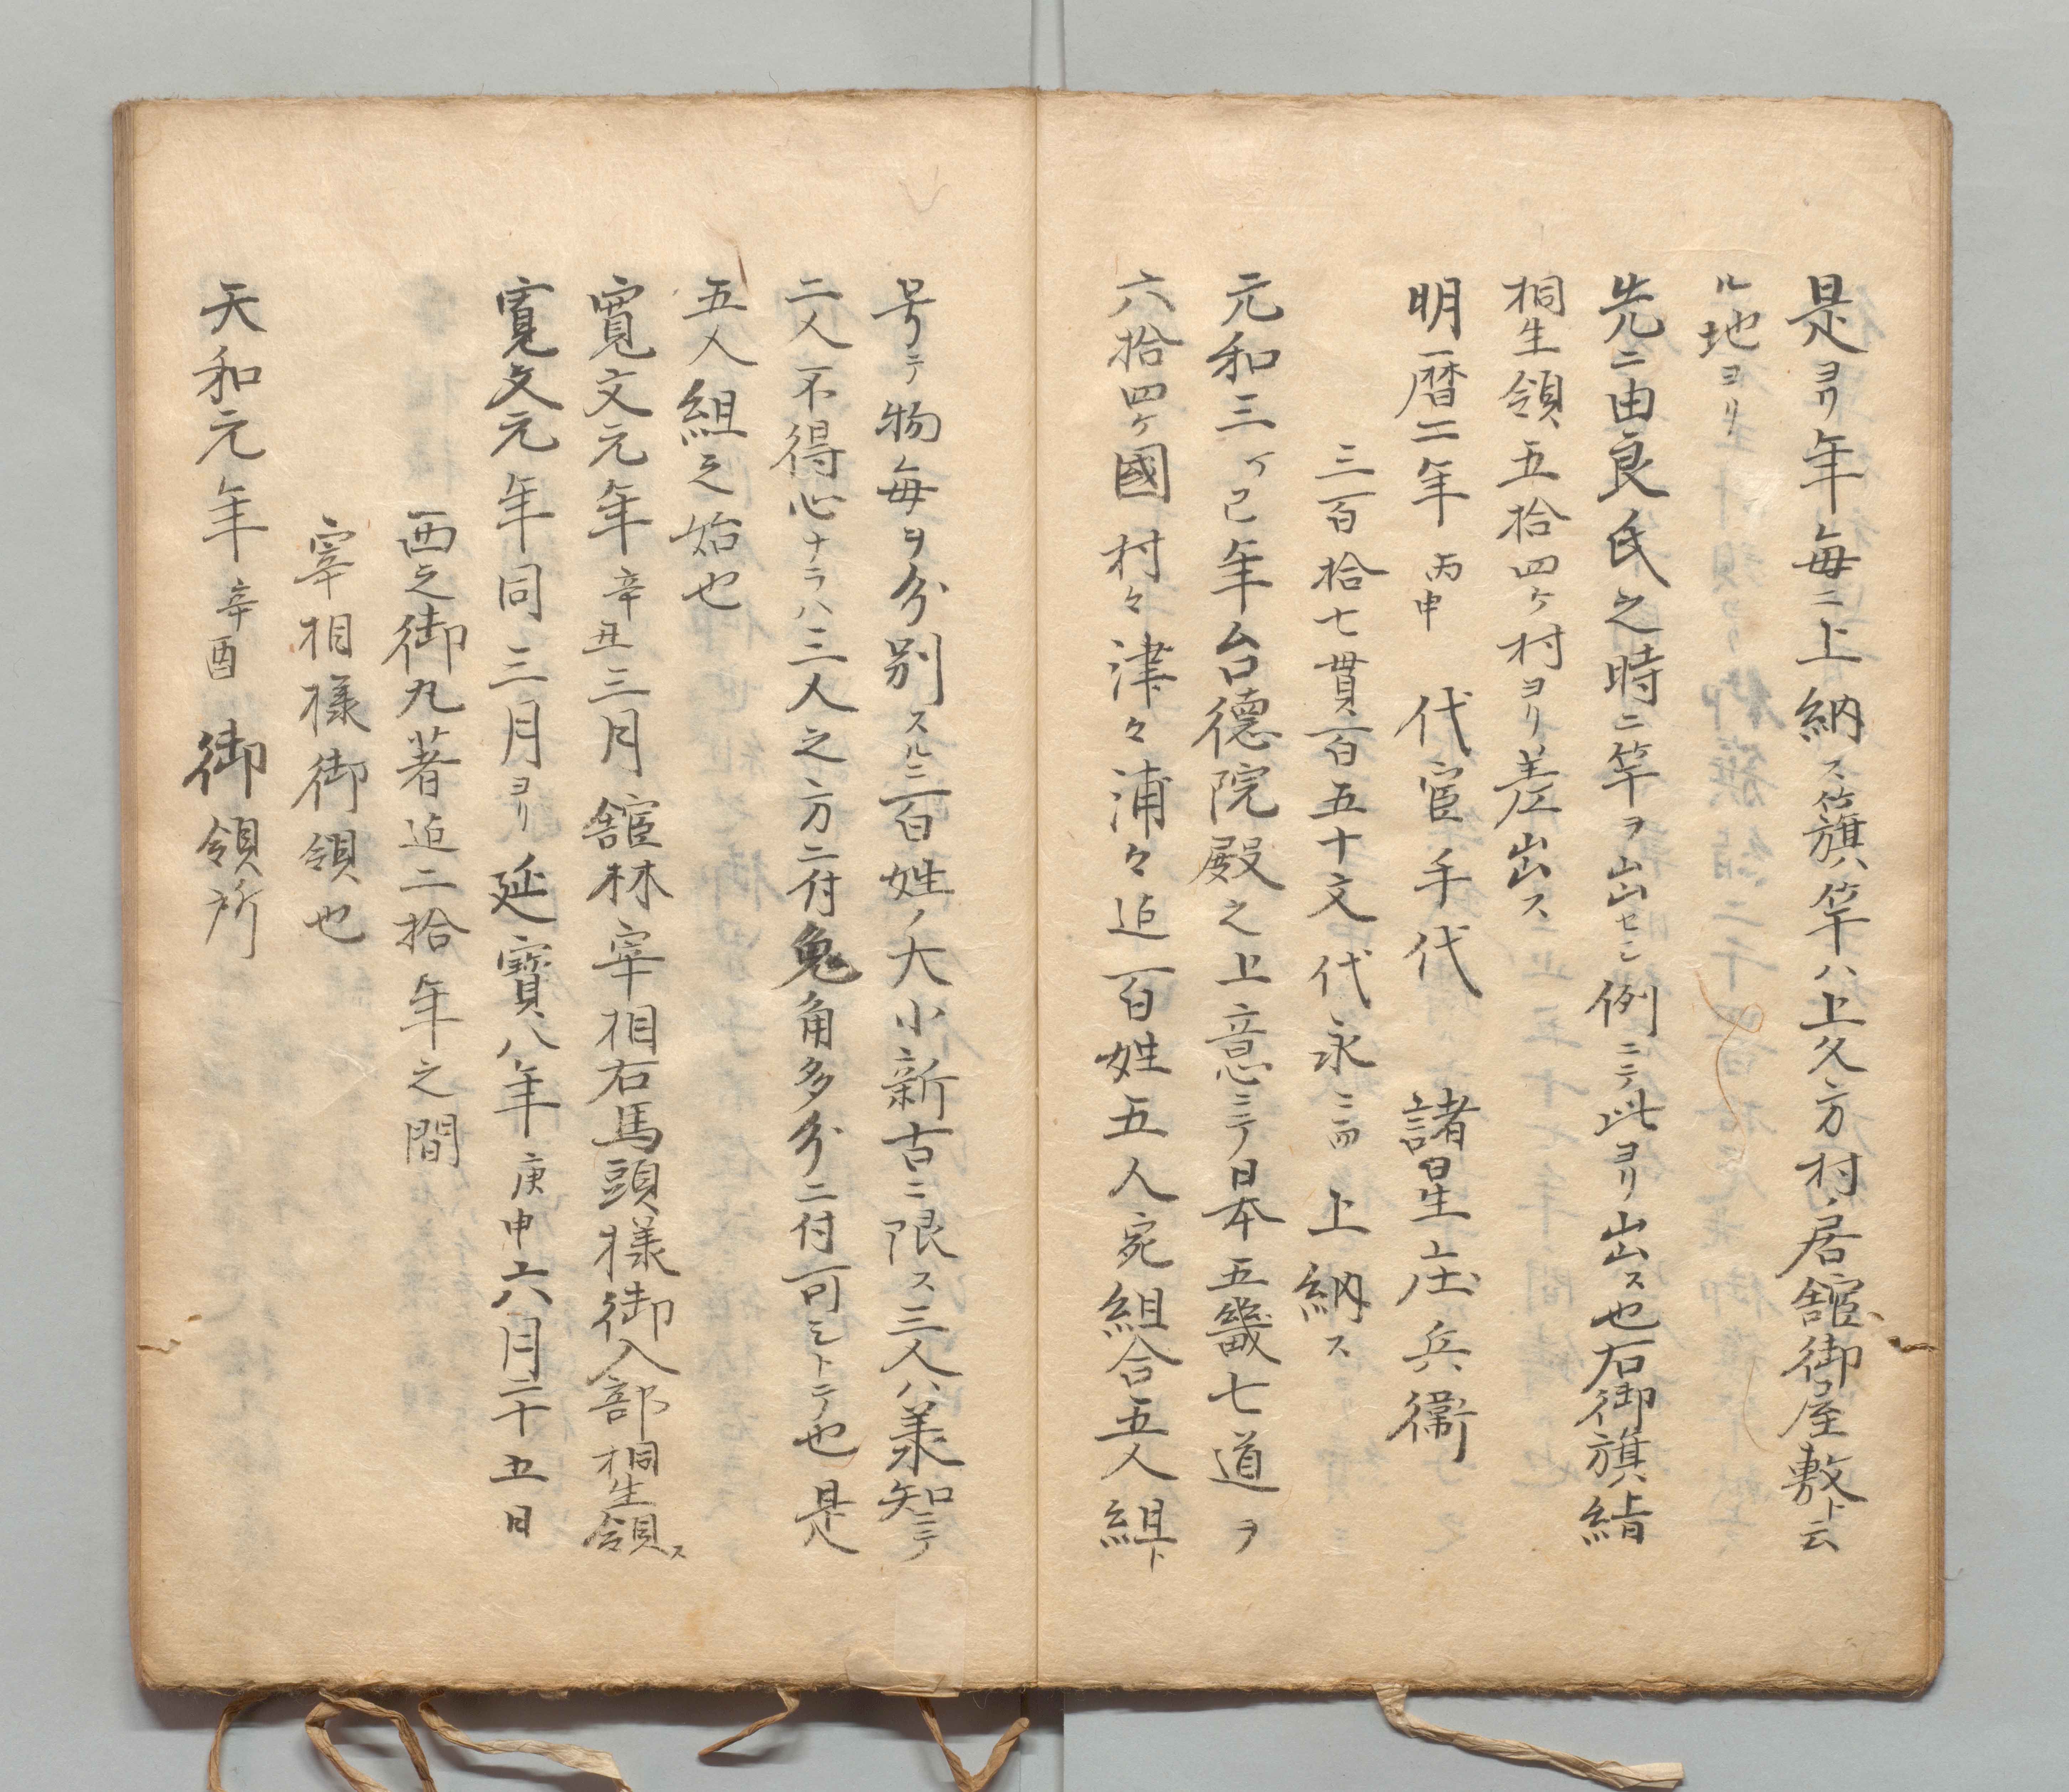 是ヨリ年毎ニ上納ス籏竿ハ上久方村ノ居舘御屋敷ト云
ル地ヨリ
先ニ由良氏之時ニ竿ヲ出セシ例ニテ此ヨリ出ス也右御旗絹
桐生領五拾四ケ村ヨリ差出ス
明暦二年丙申 代官手代 諸星庄兵衛
三百拾七貫百五十文代永ニ而上納ス
元和三丁巳年台德院殿之上意ニテ日本五畿七道ヲ
六拾四ケ國村々津々浦々迠百姓五人宛組合五人組ト
号テ物毎ヲ分別スル百姓ノ大小新古ニ限ス三人ハ羕知ニテ
二人不得心ナラハ三人之方ニ付兔角多分ニ付可シトテ也是
五人組之始也
寛文元年辛丑三月舘林宰相右馬頭様御入部桐生領ス
寛文元年同三月ヨリ延寳八年庚申六月二十五日
西之御丸著迠二拾年之間
宰相様御領也
天和元年辛酉 御領所